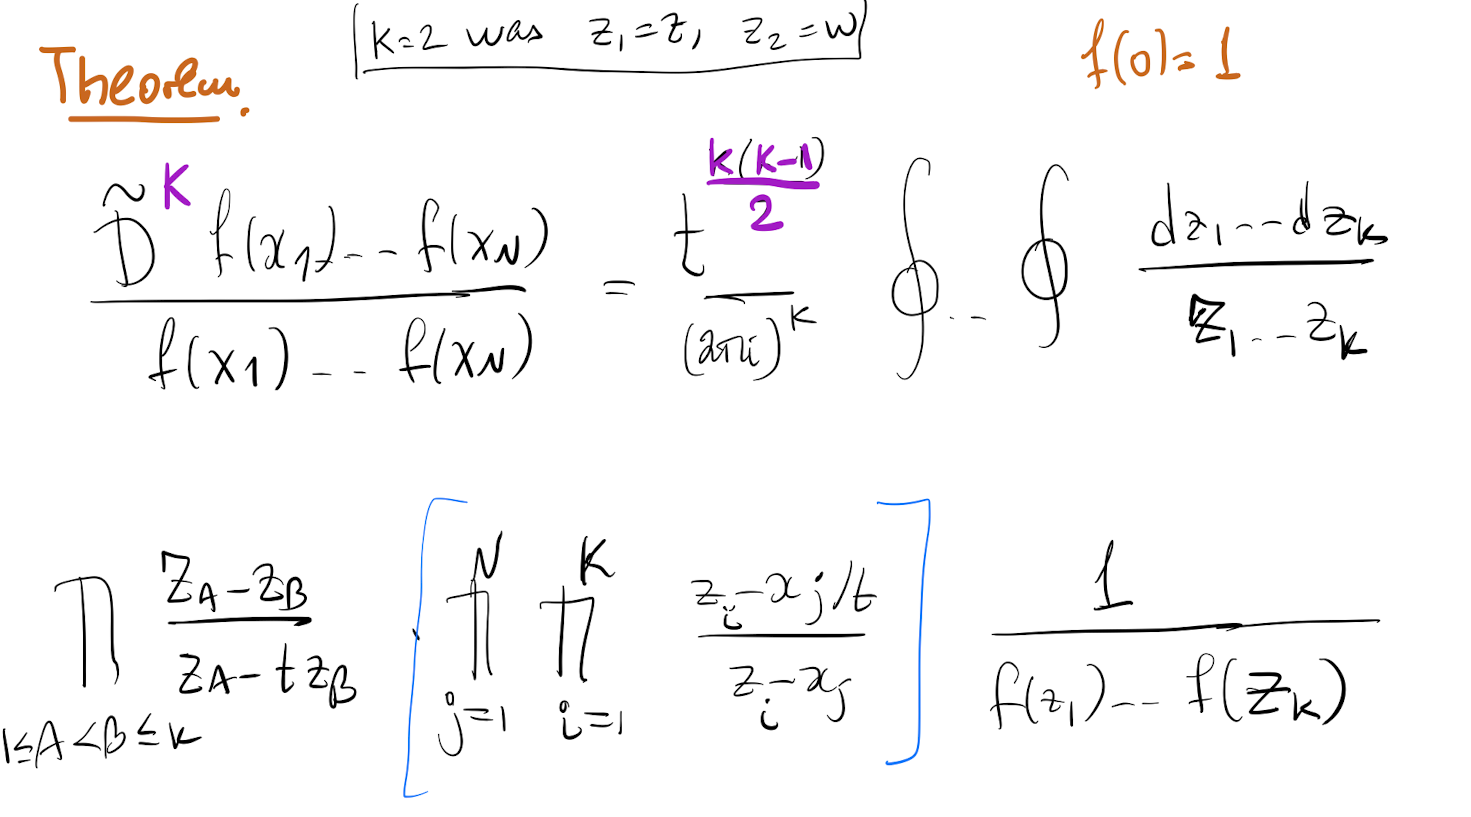 K=2 was z_1=z, z_2=w
Theorem.
f(0)=1
\frac{\tilde{D}^K f(x_1)...f(x_N)}{f(x_1)...f(x_N)} = \frac{t^{\frac{k(k-1)}{2}}}{(2\pi i)^K} \oint ... \oint \frac{dz_1...dz_k}{z_1...z_k}
\prod_{1≤A<B≤k} \frac{z_A-z_B}{z_A-tz_B} \left[ \prod_{j=1}^{N} \prod_{i=1}^{K} \frac{z_i-x_j/t}{z_i-x_j} \right] \frac{1}{f(z_1)...f(z_k)}